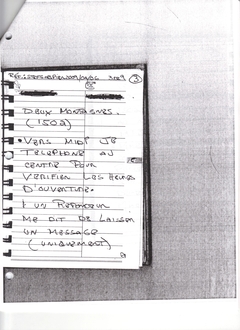 3
DEUX MONTAGNES.
(1502)
• VERS MIDI JE
TELEPHONE AU
CENTRE POUR
VERIFIER LES HEURES
D'OUVERTURE.
UN REPONDEUR
ME DIT DE LAISSER
UN MESSAGE
(UNIQUEMENT)